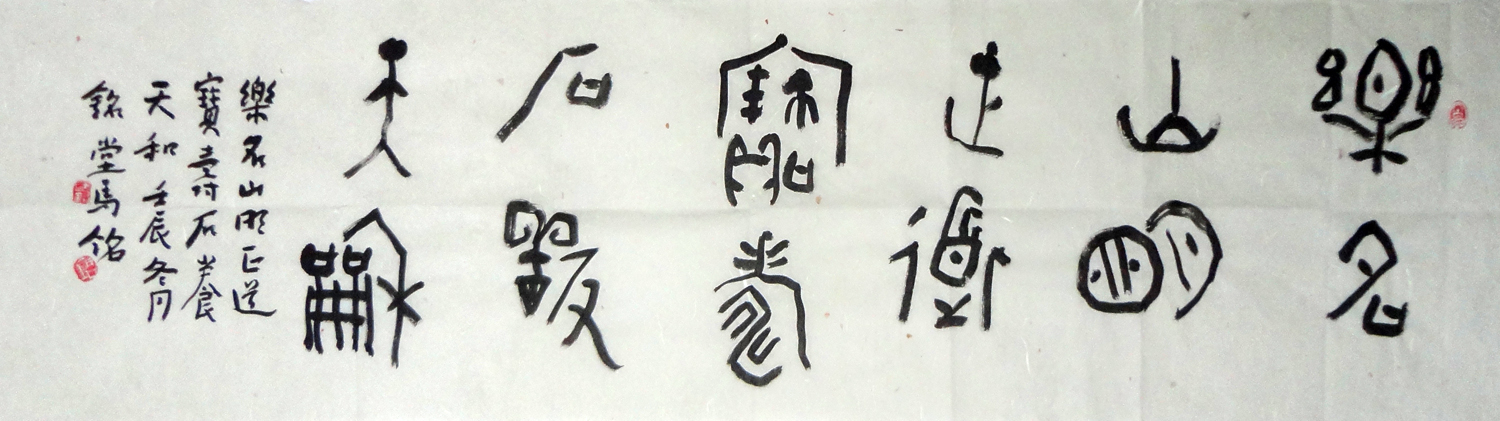 樂名
山明
正道
寶壽
石養
天龢
樂名山明正道
寶壽石養
天和 壬辰冬月
銘堂馬銘